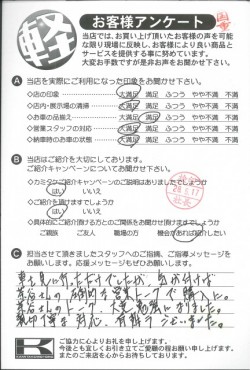 軽
お客様アンケート
当店では、お買い上げ頂いたお客様の声を可能
な限り現場に反映し、お客様により良い商品と
サービスを提供する事に努めています。
大変お手数ですが是非お声をお聞かせ下さい。
A 当店を実際にご利用になった印象をお聞かせ下さい。
◇店の印象 大満足 満足 ふつう やや不満 不満
◇店内・展示場の清掃 大満足 満足 ふつう やや不満 不満
◇お車の品揃え 大満足 満足 ふつう やや不満 不満
◇営業スタッフの対応 大満足 満足 ふつう やや不満 不満
◇納車時のお車の状態 大満足 満足 ふつう やや不満 不満
B 当店はご紹介を大切にしております。
ご紹介キャンペーンについてお聞かせ下さい。
◇カミタケご紹介キャンペーンのご説明はありましたでしょうか
はい いいえ
◇ご紹介を頂けますでしょうか
はい いいえ
◇具体的にご紹介頂ける方とのご関係をお聞かせ頂けますでしょうか
ご親族 ご友人 職場の方 機会があれば紹介したい
社長
C 担当させて頂きましたスタッフへのご指摘、ご指導メッセージを
お願いします。応援メッセージもぜひお願いします。
車を見に行っただけでしたが、気が付けば
圧倒的な営業トークで購入に。
親切丁寧な対応、有難うございました。
K
ご協力に心よりお礼を申し上げます。
今後とも宜しくお引き立てご愛顧の程お願い申し上げます。
またのご来店を心からお待ちしております。